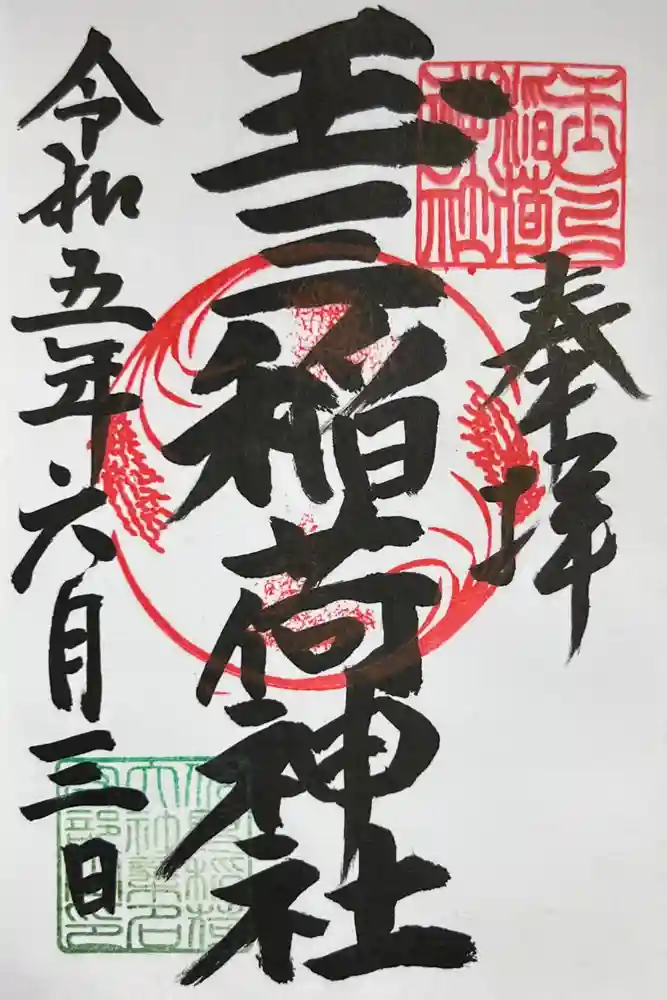 奉拝
玉三稲荷神社
令和五年六月三日